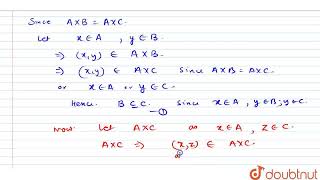 Since A×B = A×C.
Let x∈A , y∈B.
⇒ (x,y) ∈ A×B
⇒ (x,y) ∈ A×C Since A×B = A×C.
or x∈A or y∈C.
Hence B⊆C Since x∈A, y∈B, y∈C.
—①
Now Let A×C as x∈A, z∈C.
A×C ⇒ (x,z) ∈ A×C.
doubtnut